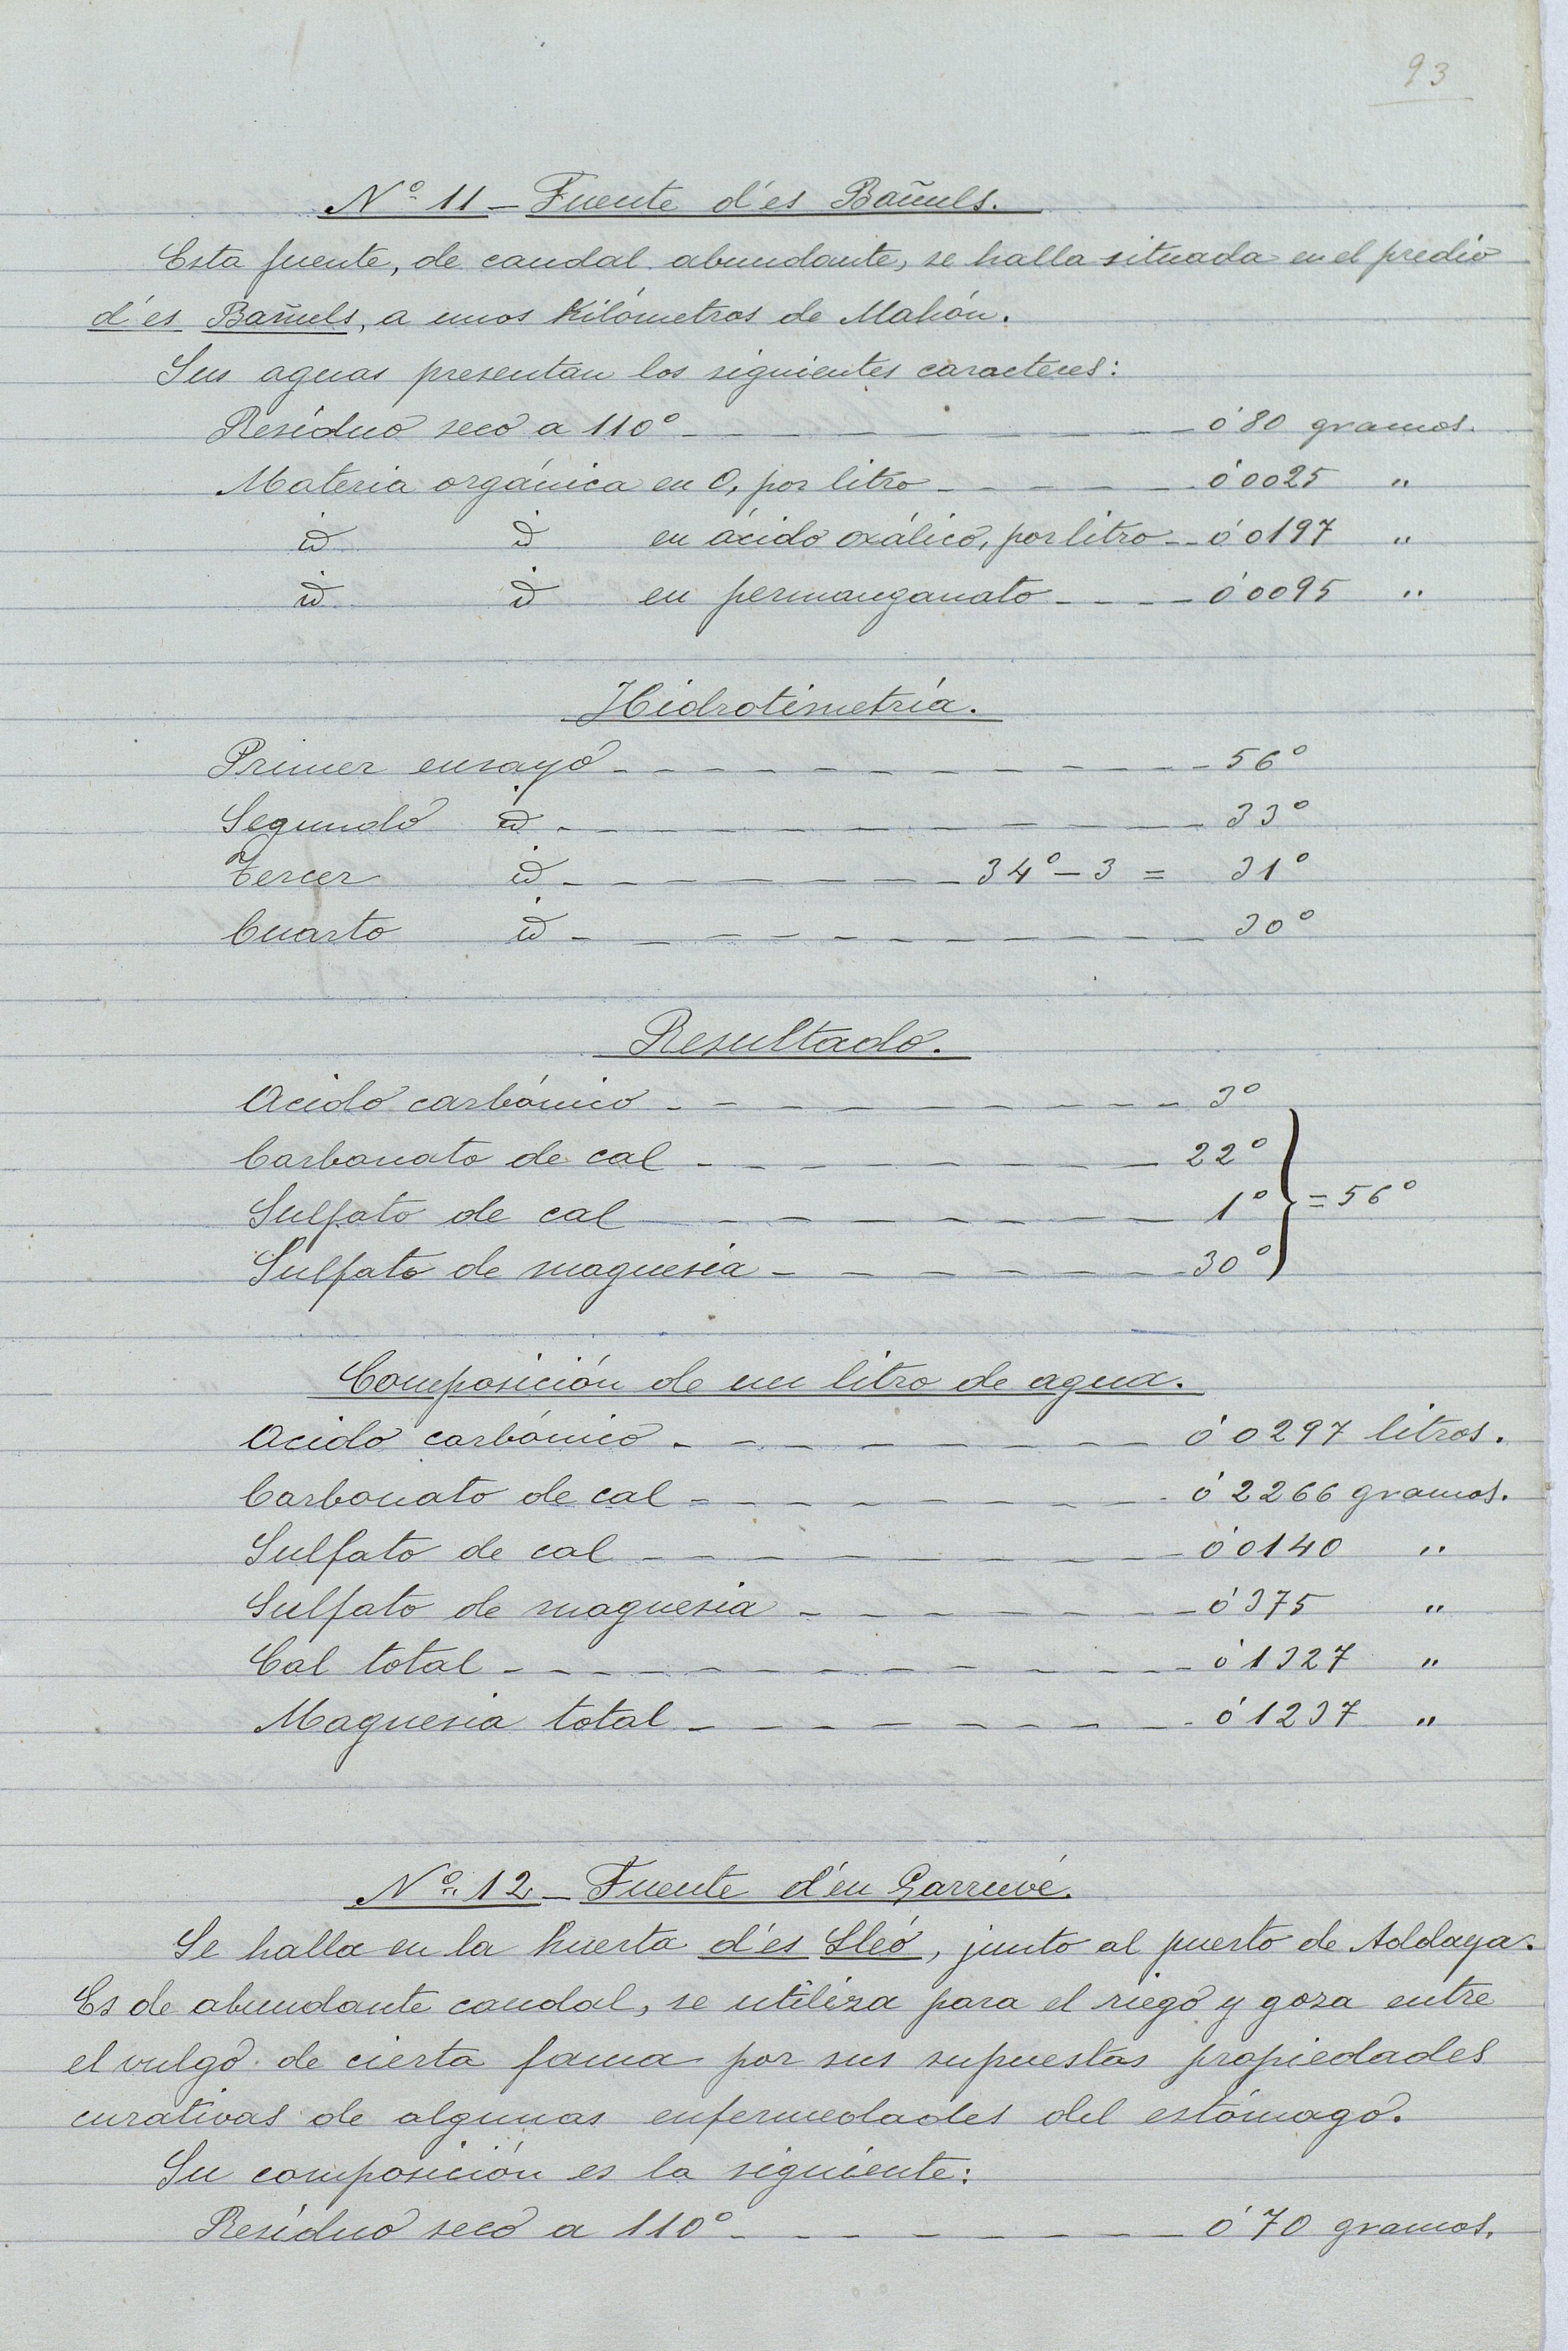 93
Nº 11 — Fuente d'es Bañuls.
Esta fuente, de caudal abundante, se halla situada en el predio
d'es Bañuls, a unos Kilómetros de Mahón.
Sus aguas presentan los siguientes caracteres:
Resíduo seco a 110° - - - - - - - - - 0'80 gramos.
Materia orgánica en O, por litro - - - - - 0'0025 "
id id en ácido oxálico, por litro - - 0'0197 "
id id en permanganato - - - - 0'0095 "
Hidrotimetría.
Primer ensayo - - - - - - - - - - - 56°
Segundo id - - - - - - - - - - - 33°
Tercer id - - - - - - - - 34° - 3 = 31°
Cuarto id - - - - - - - - - - - 30°
Resultado.
Acido carbónico - - - - - - - - - - 3°
Carbonato de cal - - - - - - - - - 22°
Sulfato de cal - - - - - - - - - 1° } = 56°
Sulfato de magnesia - - - - - - - - 30°
Composición de un litro de agua.
Acido carbónico - - - - - - - - - 0'0297 litros.
Carbonato de cal - - - - - - - - - 0'2266 gramos.
Sulfato de cal - - - - - - - - - - 0'0140 "
Sulfato de magnesia - - - - - - - - 0'375 "
Cal total - - - - - - - - - - - - 0'1327 "
Magnesia total - - - - - - - - - 0'1237 "
Nº 12 — Fuente d'en Garruvé.
Se halla en la huerta d'es Lleó, junto al puerto de Addaya.
Es de abundante caudal, se utiliza para el riego y goza entre
el vulgo de cierta fama por sus supuestas propiedades
curativas de algunas enfermedades del estómago.
Su composición es la siguiente:
Resíduo seco a 110° - - - - - - - - 0'70 gramos.